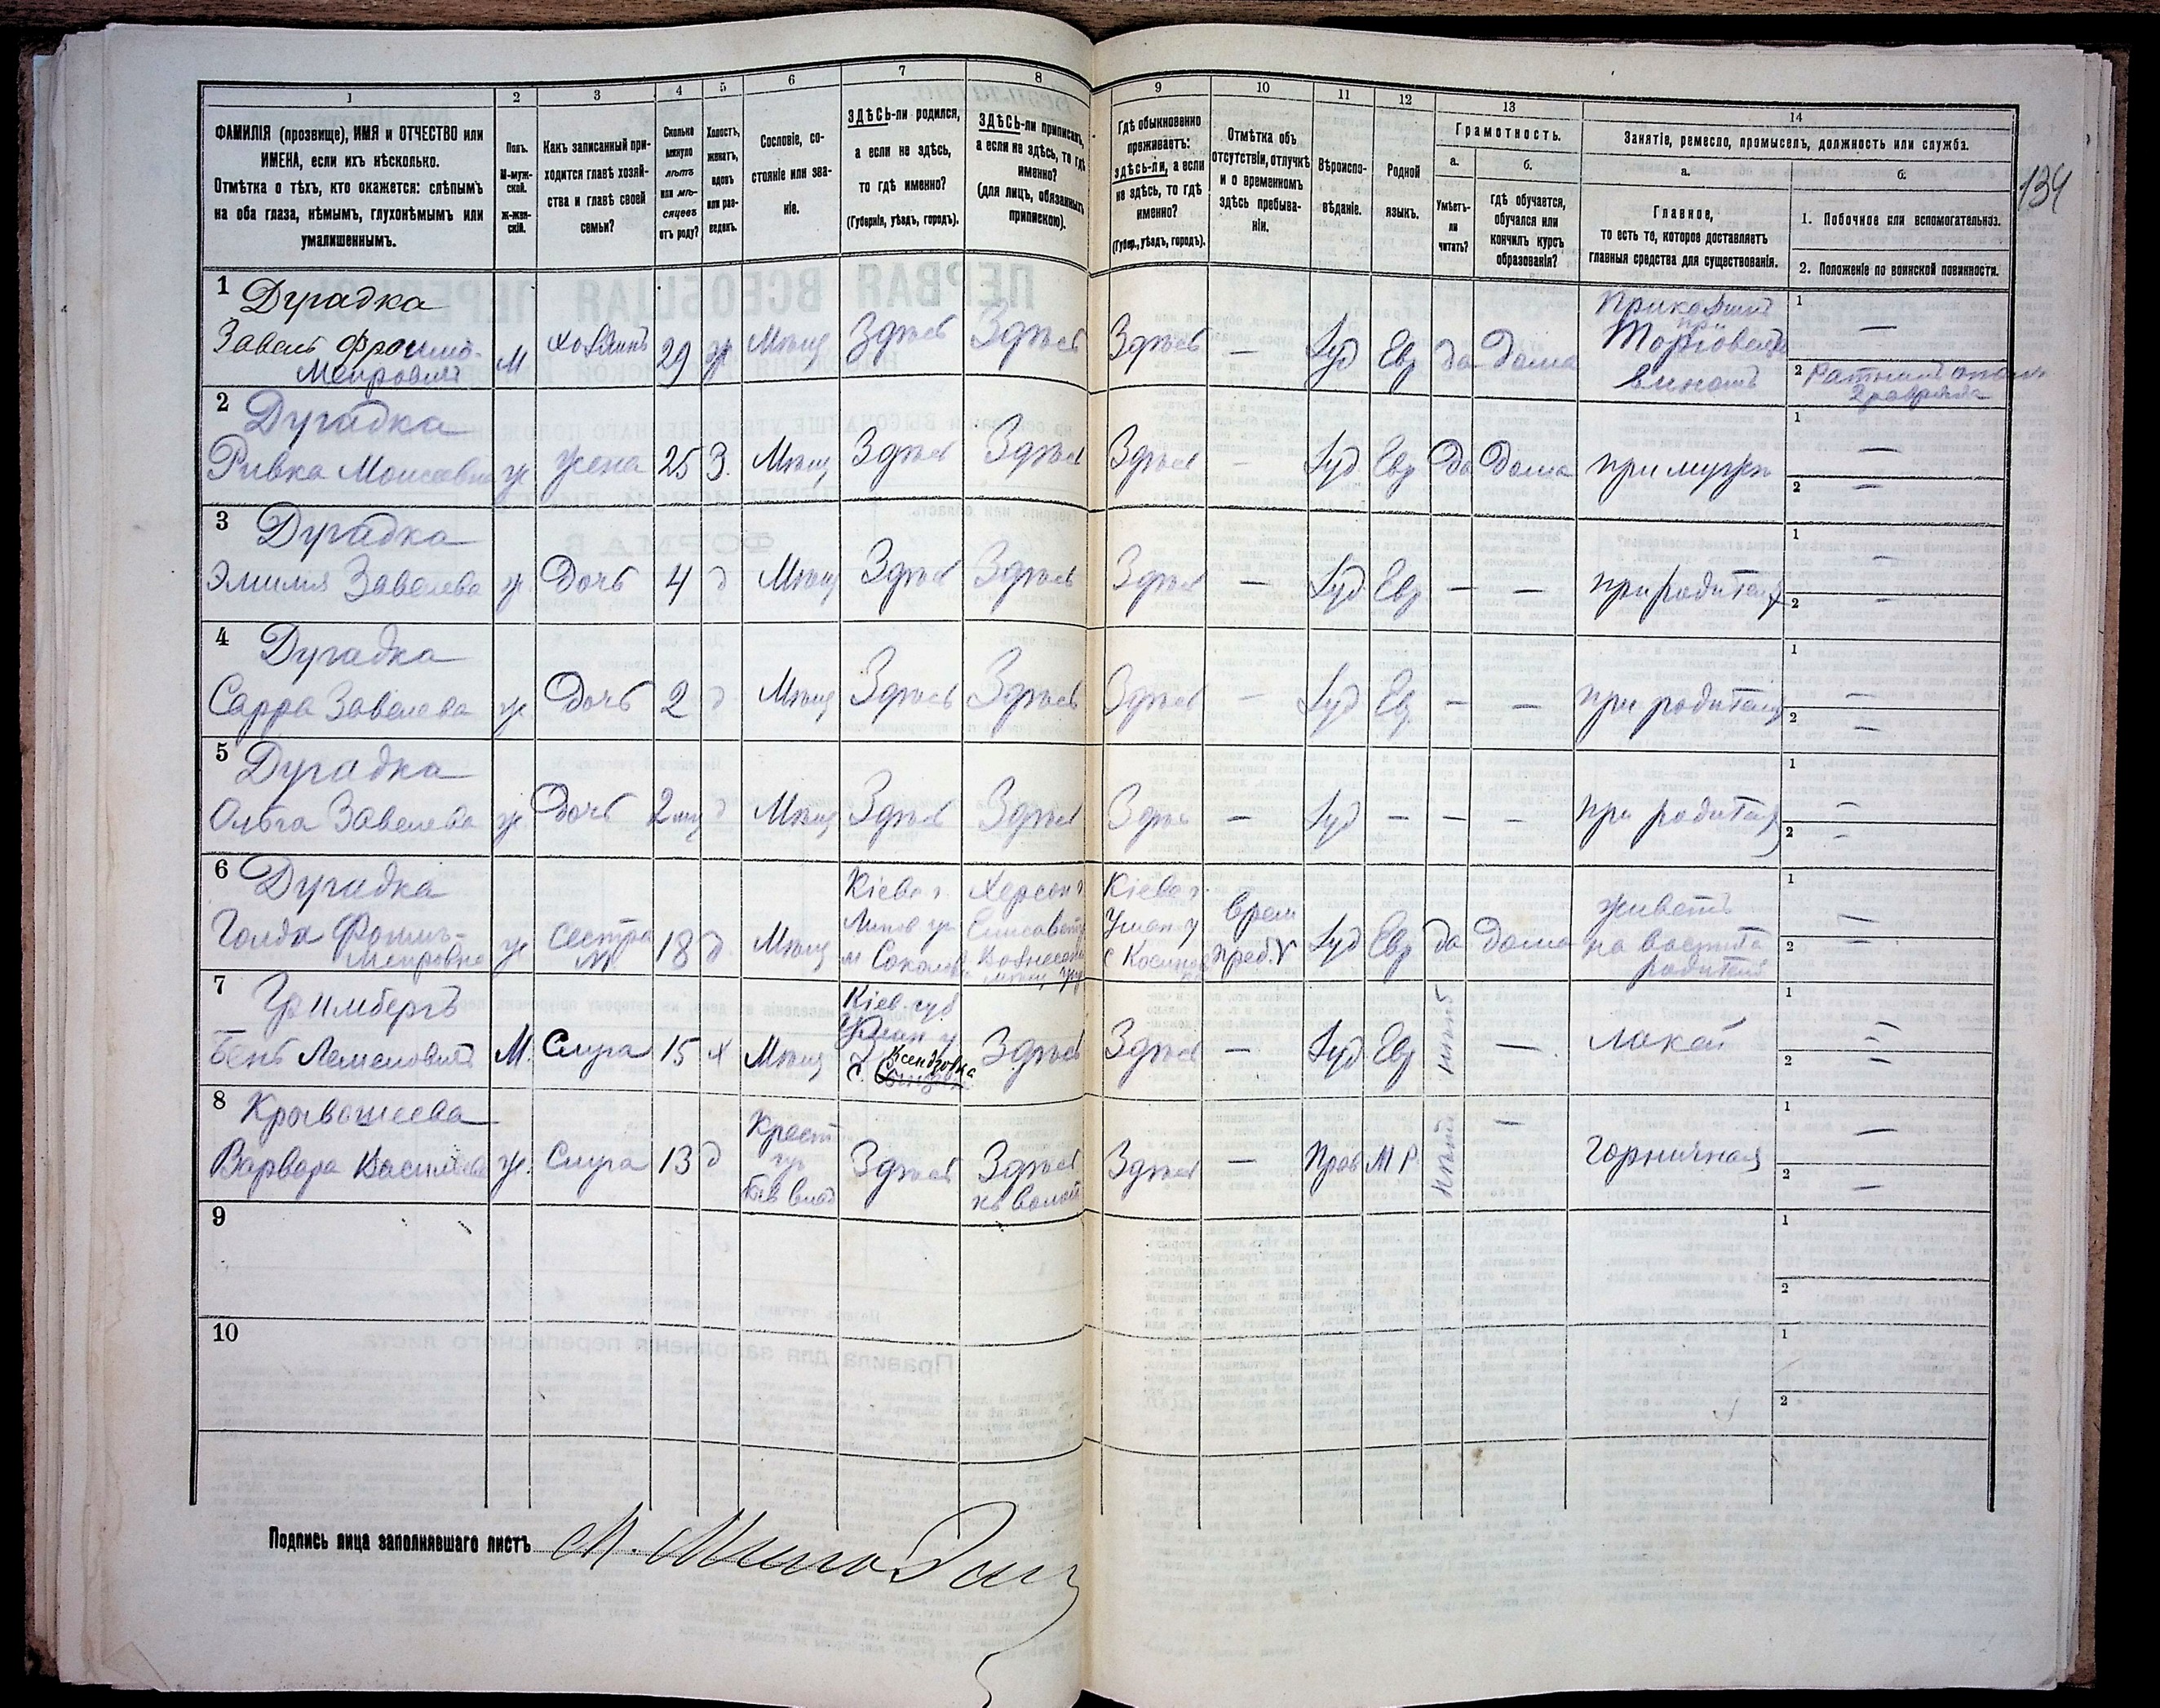 134
1
2
3
4
5
6
7
8
9
10
11
12
13
14
ФАМИЛІЯ (прозвище), ИМЯ и ОТЧЕСТВО или
ИМЕНА, если ихъ нѣсколько.
Отмѣтка о тѣхъ, кто окажется: слѣпымъ
на оба глаза, нѣмымъ, глухонѣмымъ или
умалишеннымъ.
Полъ.
М-муж-
ской.
ж-жен-
скій.
Какъ записанный при-
ходится главѣ хозяй-
ства и главѣ своей
семьи?
Сколько
минуло
лѣтъ
или мѣ-
сяцевъ
отъ роду?
Холостъ,
женатъ,
вдовъ
или раз-
веденъ.
Сословіе, со-
стояніе или зва-
ніе.
ЗДѢСЬ-ли родился,
а если не здѣсь,
то гдѣ именно?
(Губернія, уѣздъ, городъ).
ЗДѢСЬ-ли приписанъ,
а если не здѣсь, то гдѣ
именно?
(для лицъ, обязанныхъ
припискою).
Гдѣ обыкновенно
проживаетъ:
здѣсь-ли, а если
не здѣсь, то гдѣ
именно?
(Губер., уѣздъ, городъ).
Отмѣтка объ
отсутствіи, отлучкѣ
и о временномъ
здѣсь пребыва-
ніи.
Вѣроиспо-
вѣданіе.
Родной
языкъ.
Грамотность.
а.
Умѣетъ-
ли
читать?
б.
Гдѣ обучается,
обучался или
кончилъ курсъ
образованія?
Занятіе, ремесло, промыселъ, должность или служба.
а.
Главное,
то есть то, которое доставляетъ
главныя средства для существованія.
б.
1. Побочное или вспомогательное.
2. Положеніе по воинской повинности.
1 Дурадка
Завель Фроимъ-
Меировичъ
М Хозяинъ 29 ж Мѣщ Здѣсь Здѣсь Здѣсь — Іуд Евр да дома
Прикащикъ
при
Торговлѣ
виномъ
1 —
2 Ратникъ ополч
2 разряда
2 Дурадка
Ривка Моисеевна ж жена 25 З. Мѣщ Здѣсь Здѣсь Здѣсь — Іуд Евр да дома при мужѣ
1 —
2 —
3 Дурадка
Эмилия Завелева ж Дочь 4 д Мѣщ Здѣсь Здѣсь Здѣсь — Іуд Евр — — при родителях
1 —
2 —
4 Дурадка
Сарра Завелева ж Дочь 2 д Мѣщ Здѣсь Здѣсь Здѣсь — Іуд Евр — — при родителях
1 —
2 —
5 Дурадка
Ольга Завелева ж Дочь 2 мц д Мѣщ Здѣсь Здѣсь Здѣсь — Іуд — — — при родителях
1 —
2 —
6 Дурадка
Голда Фроимъ-
Меировна
ж сестра 18 д Мѣщ
Кіевс г.
Липов уи
м Соколов
Херсон г
Елисаветг
Вознесенс
Кіевс г.
Уман у
врем
преб.
Іуд Евр да дома
живетъ
родителей
1 —
2 —
7 Гримбергъ
Бень М. Слуга 15 х Мѣщ
Кіев губ
Уман у
с. Ксендзовка
Здѣсь Здѣсь — Іуд. Евр — лакей
1 —
2 —
8 Кривошеева
Варвара Василева ж. Слуга 13 д
Крест
Здѣсь
Здѣсь
Здѣсь — Прав М Р. — горничная
1 —
2 —
9
1
2
10
1
2
Подпись лица заполнявшаго листъ